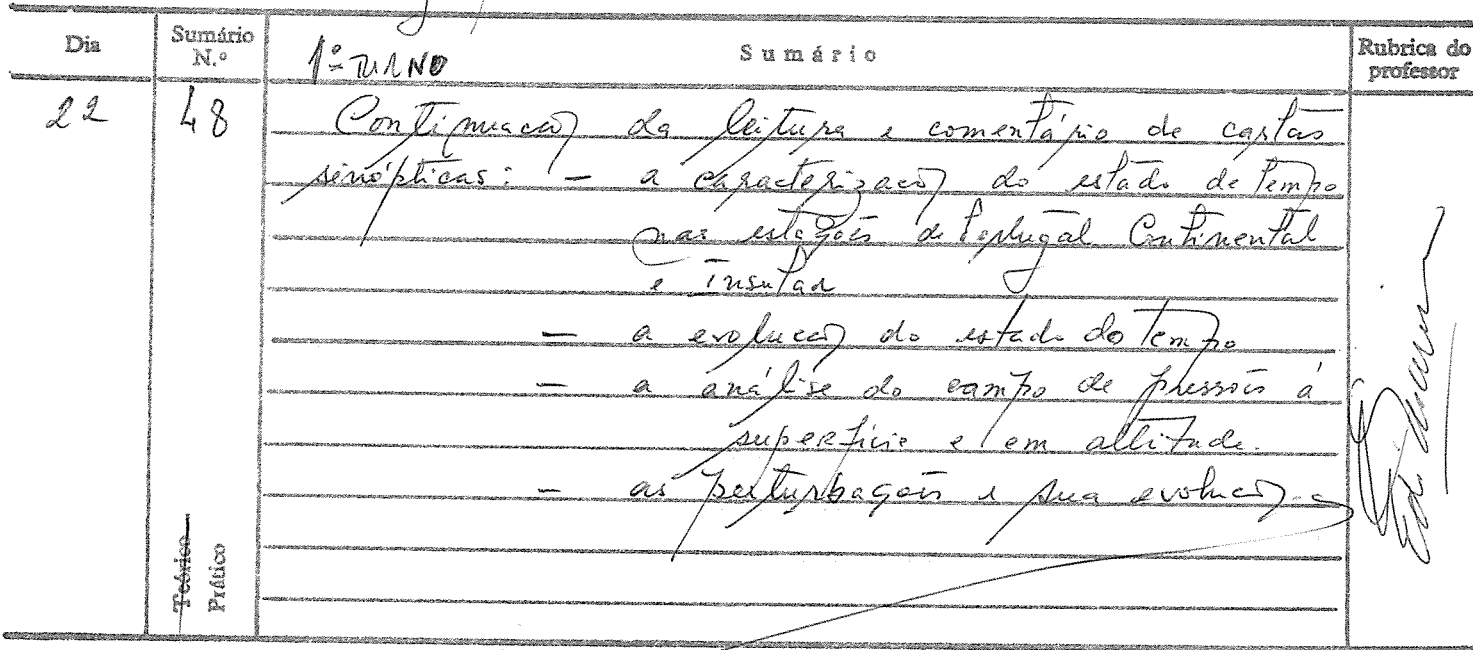 Dia Sumário N.º Sumário Rubrica do professor
1º TURNO
22 48 Continuação da leitura e comentário de cartas
sinópticas: - a caracterização do estado de tempo
nas estações de Portugal Continental
e Insular
- a evolução do estado do tempo
- a análise do campo de pressões à
superfície e em altitude.
- as perturbações e sua evolução.
Teórico
Prático